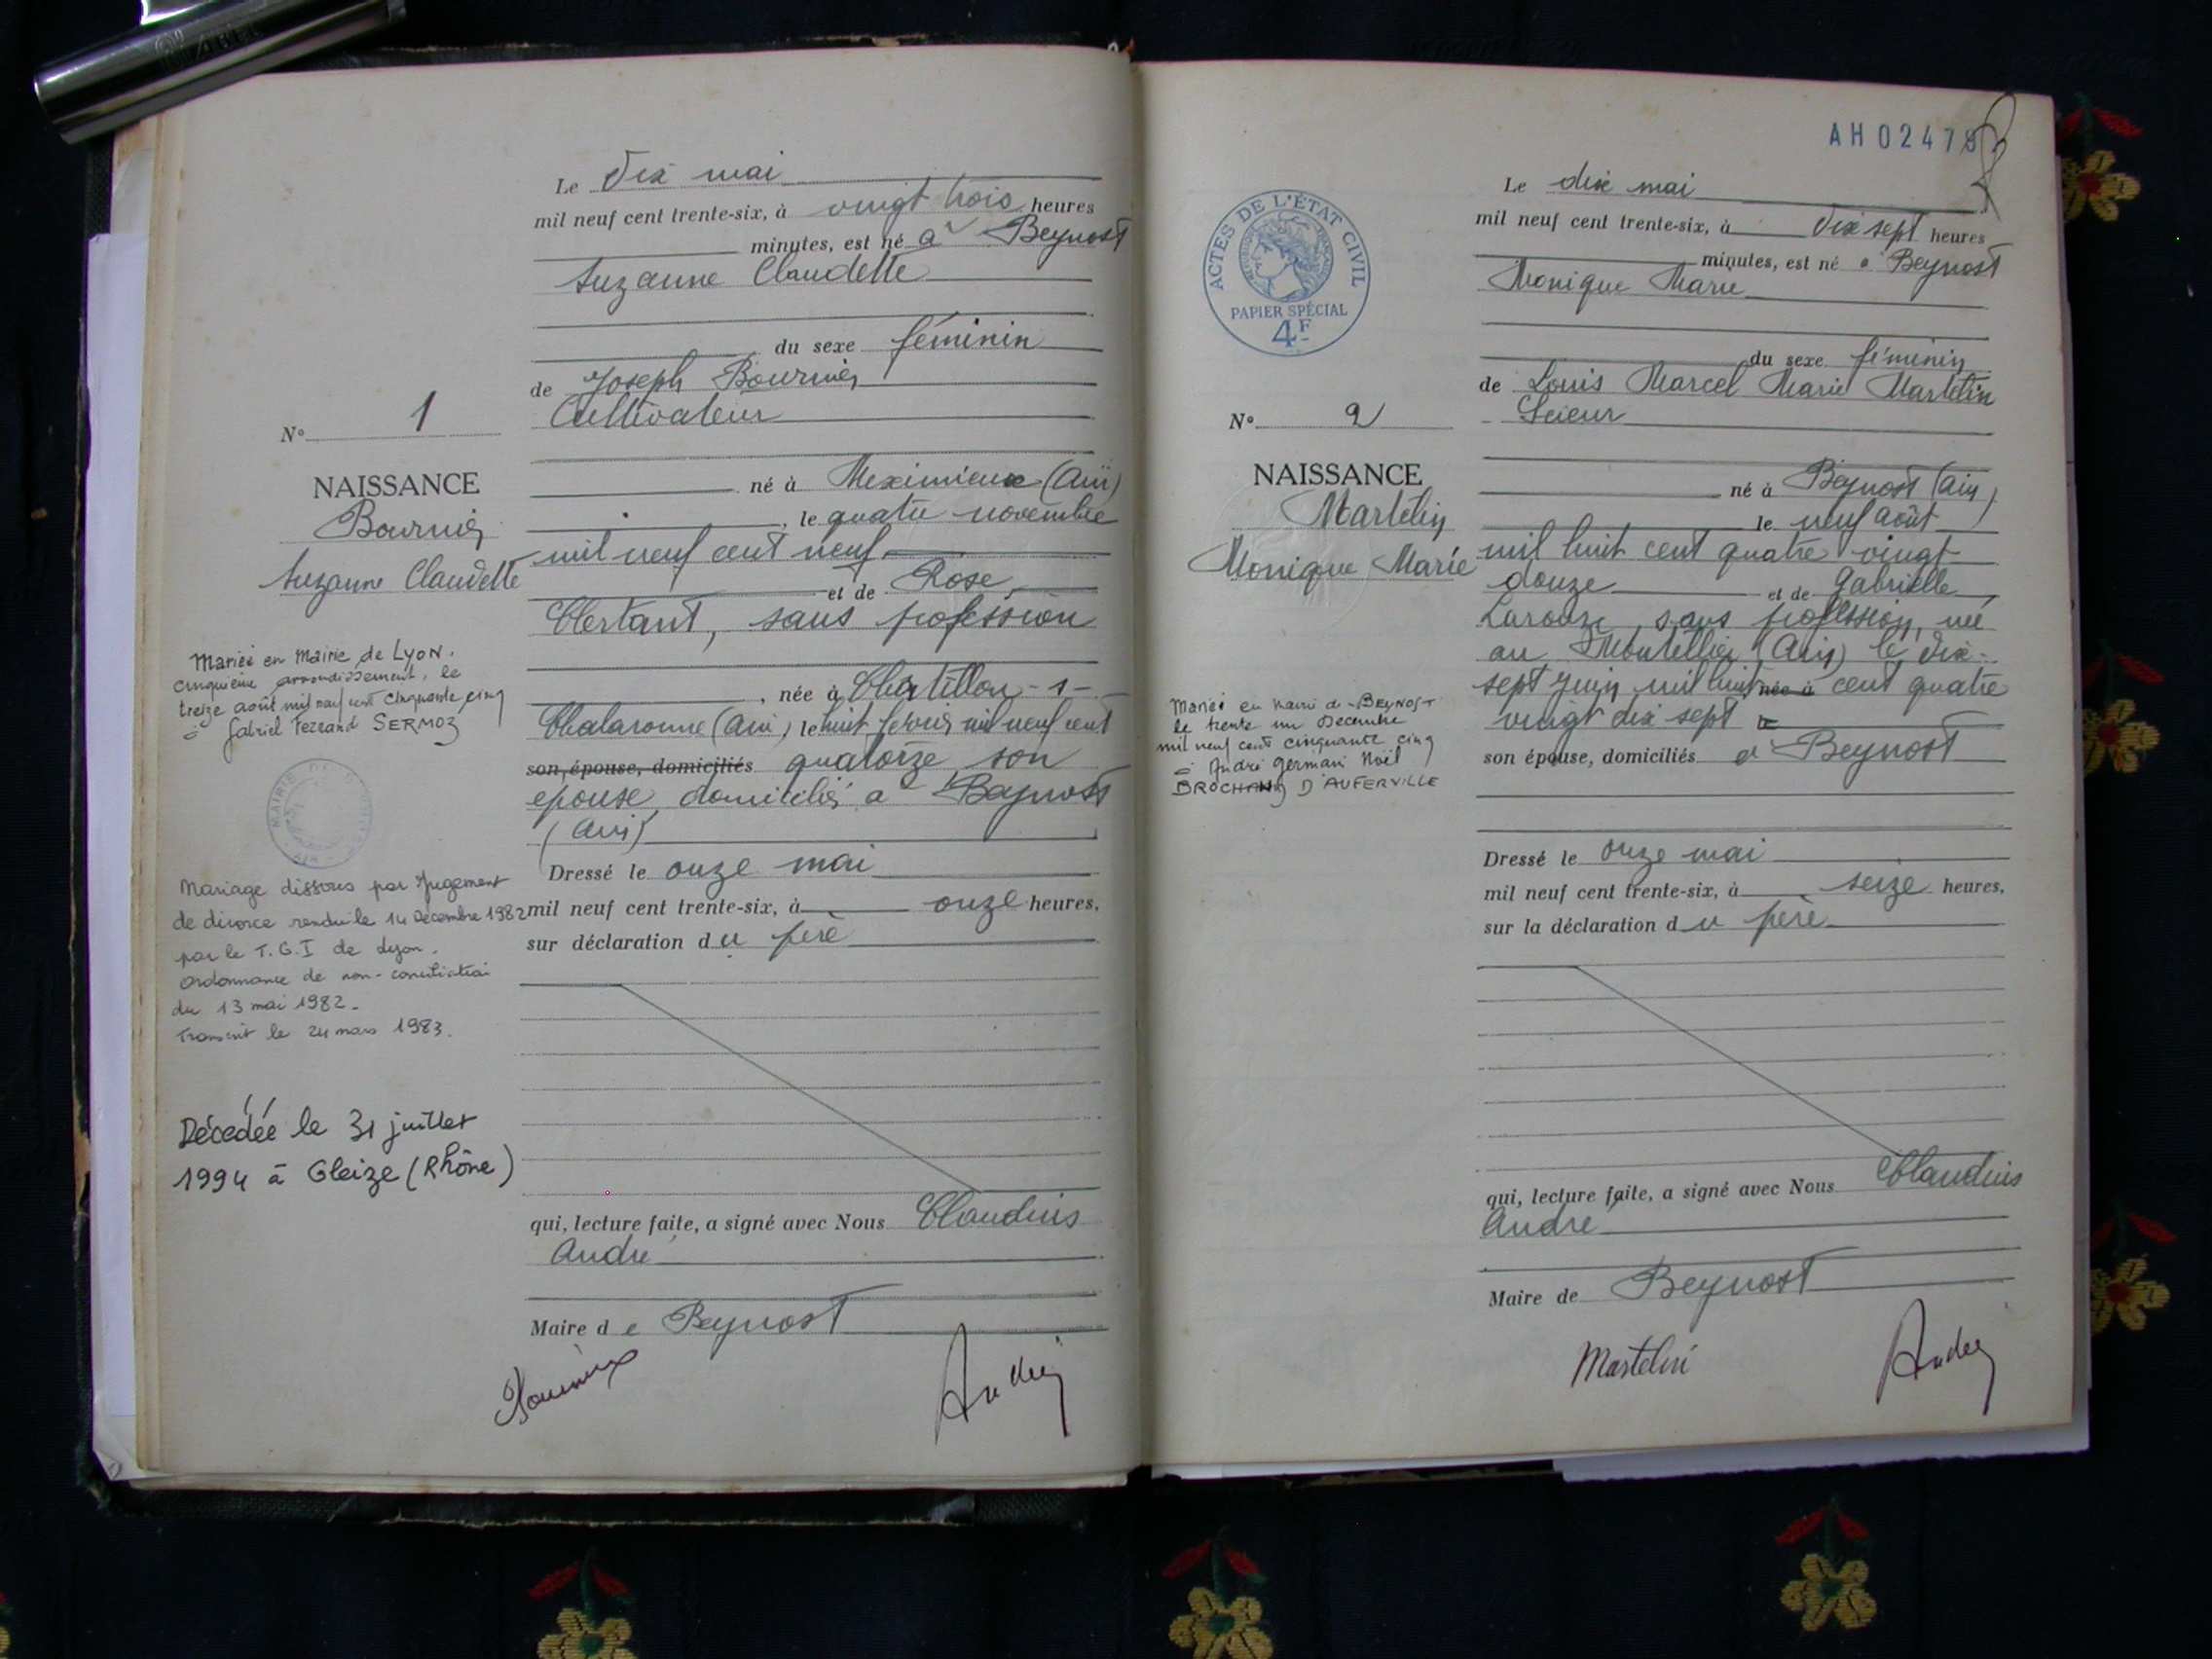 Le dix mai
mil neuf cent trente-six, à vingt trois heures
minutes, est né à Beynost
Suzanne Claudette
du sexe féminin
de Joseph Bournier
Cultivateur
N° 1
né à Meximieux (Ain)
NAISSANCE
Bournier
Suzanne Claudette
, le quatre novembre
mil neuf cent neuf
et de Rose
Clertant, sans profession
, née à Châtillon-s-
Chalaronne (Ain) le huit février mil neuf cent
son épouse, domiciliés quatorze son
épouse, domiciliés à Beynost
(Ain)
Dressé le onze mai
mil neuf cent trente-six, à onze heures,
sur déclaration du père
Mariée en Mairie de LYON.
cinquième arrondissement, le
treize août mil neuf cent cinquante cinq
à Gabriel Ferrand SERMOZ
MAIRIE DE
AIN
Mariage dissous par Jugement
de divorce rendu le 14 Décembre 1982
par le T.G.I de Lyon.
Ordonnance de non-conciliation
du 13 mai 1982.
Transcrit le 24 mars 1983.
Décédée le 31 juillet
1994 à Gleize (Rhône)
qui, lecture faite, a signé avec Nous Claudius
André
Maire de Beynost
André
AH 0247
Le dix mai
mil neuf cent trente-six, à dix sept heures
minutes, est né à Beynost
Monique Marie
ACTES DE L'ÉTAT CIVIL
RÉPUBLIQUE FRANÇAISE
PAPIER SPÉCIAL
4F
du sexe féminin
de Louis Marcel Marie Martelin
Scieur
N° 2
NAISSANCE
Martelin
Monique Marie
né à Beynost (Ain)
le neuf août
mil huit cent quatre vingt
douze et de Gabrielle
sans profession, née
au (Ain) le dix-
sept juin mil huit née à cent quatre
vingt dix sept
son épouse, domiciliés à Beynost
Mariée en Mairie de BEYNOST
le trente un Décembre
mil neuf cent cinquante cinq
à André Germain Noël
BROCHAND D'AUFERVILLE
Dressé le onze mai
mil neuf cent trente-six, à seize heures,
sur la déclaration du père
qui, lecture faite, a signé avec Nous Claudius
André
Maire de Beynost
Martelin
André